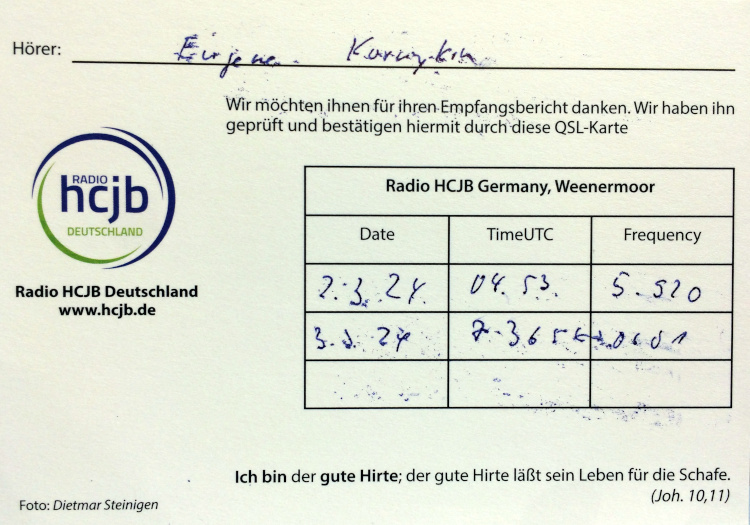 Hörer: Eugene
Wir möchten ihnen für ihren Empfangsbericht danken. Wir haben ihn
geprüft und bestätigen hiermit durch diese QSL-Karte
RADIO
hcjb
DEUTSCHLAND
Radio HCJB Deutschland
www.hcjb.de
Radio HCJB Germany, Weenermoor
Date TimeUTC Frequency
2.3.24 04.53 5.920
3.3.24 7.365
Ich bin der gute Hirte; der gute Hirte läßt sein Leben für die Schafe.
(Joh. 10,11)
Foto: Dietmar Steinigen